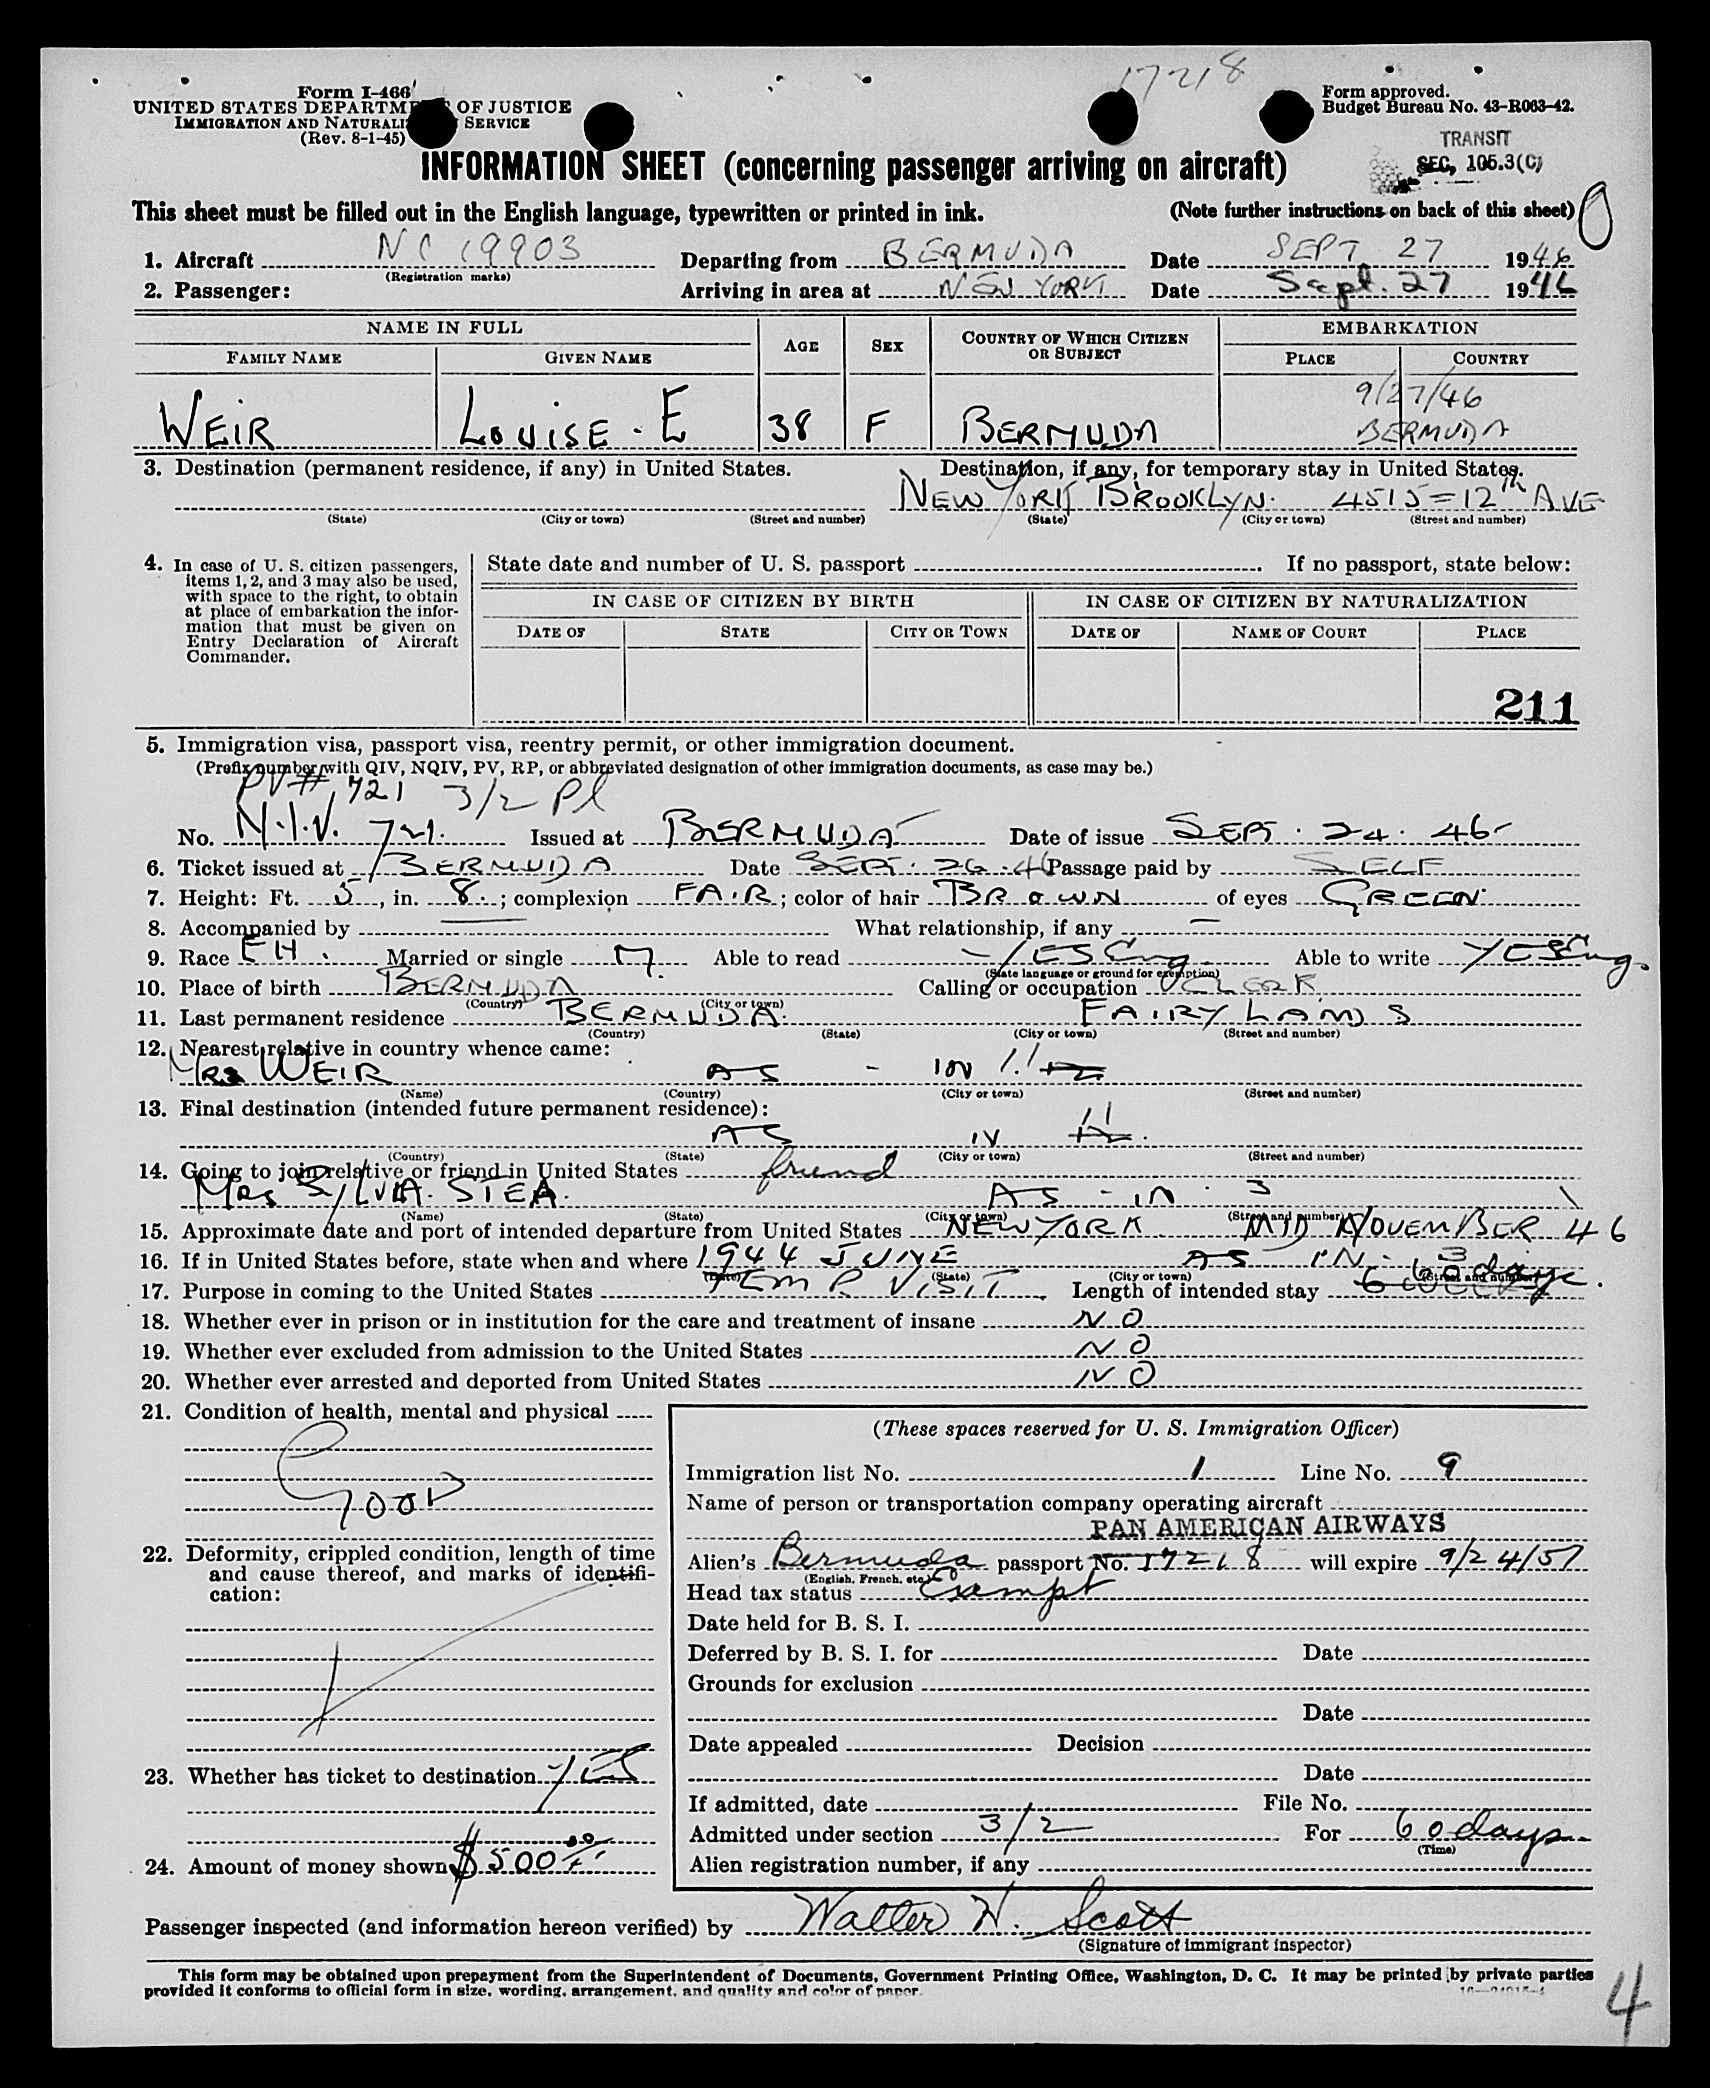 17218
Form I-466
UNITED STATES DEPARTMENT OF JUSTICE
IMMIGRATION AND NATURALIZATION SERVICE
(Rev. 8-1-45)
Form approved.
Budget Bureau No. 43-R063-42.
TRANSIT
SEC. 105.3(C)
INFORMATION SHEET (concerning passenger arriving on aircraft)
This sheet must be filled out in the English language, typewritten or printed in ink. (Note further instructions on back of this sheet)
1. Aircraft NC 19903 Departing from BERMUDA Date SEPT 27 1946
(Registration marks)
2. Passenger: Arriving in area at NEW YORK Date Sept. 27 1946
NAME IN FULL AGE SEX COUNTRY OF WHICH CITIZEN OR SUBJECT EMBARKATION
FAMILY NAME GIVEN NAME PLACE COUNTRY
9/27/46
WEIR LOUISE. E 38 F BERMUDA BERMUDA
3. Destination (permanent residence, if any) in United States. Destination, if any, for temporary stay in United States.
NEW YORK BROOKLYN. 4515=12th AVE
(State) (City or town) (Street and number) (State) (City or town) (Street and number)
4. In case of U. S. citizen passengers, items 1, 2, and 3 may also be used, with space to the right, to obtain at place of embarkation the information that must be given on Entry Declaration of Aircraft Commander.
State date and number of U. S. passport If no passport, state below:
IN CASE OF CITIZEN BY BIRTH IN CASE OF CITIZEN BY NATURALIZATION
DATE OF STATE CITY OR TOWN DATE OF NAME OF COURT PLACE
211
5. Immigration visa, passport visa, reentry permit, or other immigration document.
(Prefix number with QIV, NQIV, PV, RP, or abbreviated designation of other immigration documents, as case may be.)
PV# 721 3/2 Pl
No. N.I.V. 721. Issued at BERMUDA Date of issue SEPT. 24. 46
6. Ticket issued at BERMUDA Date SEPT. 26. 46 Passage paid by SELF
7. Height: Ft. 5, in. 8.; complexion FAIR; color of hair BROWN of eyes GREEN
8. Accompanied by — What relationship, if any —
9. Race EH. Married or single M. Able to read YES Eng. Able to write YES Eng.
(State language or ground for exemption)
10. Place of birth BERMUDA Calling or occupation CLERK
(Country) (City or town)
11. Last permanent residence BERMUDA. FAIRYLANDS
(Country) (State) (City or town) (Street and number)
12. Nearest relative in country whence came:
Mrs WEIR AS - IN 11
(Name) (Country) (City or town) (Street and number)
13. Final destination (intended future permanent residence):
AS IN 11
(Country) (State) (City or town) (Street and number)
14. Going to join relative or friend in United States friend
Mrs SYLVIA. STEA. AS - IN. 3
(Name) (State) (City or town) (Street and number)
15. Approximate date and port of intended departure from United States NEW YORK MID NOVEMBER 46
16. If in United States before, state when and where 1944 JUNE AS IN - 3
(Date) (State) (City or town) (Street and number)
17. Purpose in coming to the United States TEMP. VISIT Length of intended stay 60 days.
18. Whether ever in prison or in institution for the care and treatment of insane NO
19. Whether ever excluded from admission to the United States NO
20. Whether ever arrested and deported from United States NO
21. Condition of health, mental and physical
GOOD
22. Deformity, crippled condition, length of time and cause thereof, and marks of identification:
23. Whether has ticket to destination YES
24. Amount of money shown $500 00
(These spaces reserved for U. S. Immigration Officer)
Immigration list No. 1 Line No. 9
Name of person or transportation company operating aircraft
PAN AMERICAN AIRWAYS
Alien's Bermuda passport No. 17218 will expire 9/24/51
(English, French, etc.)
Head tax status Exempt
Date held for B. S. I.
Deferred by B. S. I. for Date
Grounds for exclusion
Date
Date appealed Decision
Date
If admitted, date File No.
Admitted under section 3/2 For 60 days
(Time)
Alien registration number, if any
Passenger inspected (and information hereon verified) by Walter H. Scott
(Signature of immigrant inspector)
This form may be obtained upon prepayment from the Superintendent of Documents, Government Printing Office, Washington, D. C. It may be printed by private parties
provided it conforms to official form in size, wording, arrangement, and quality and color of paper.
4